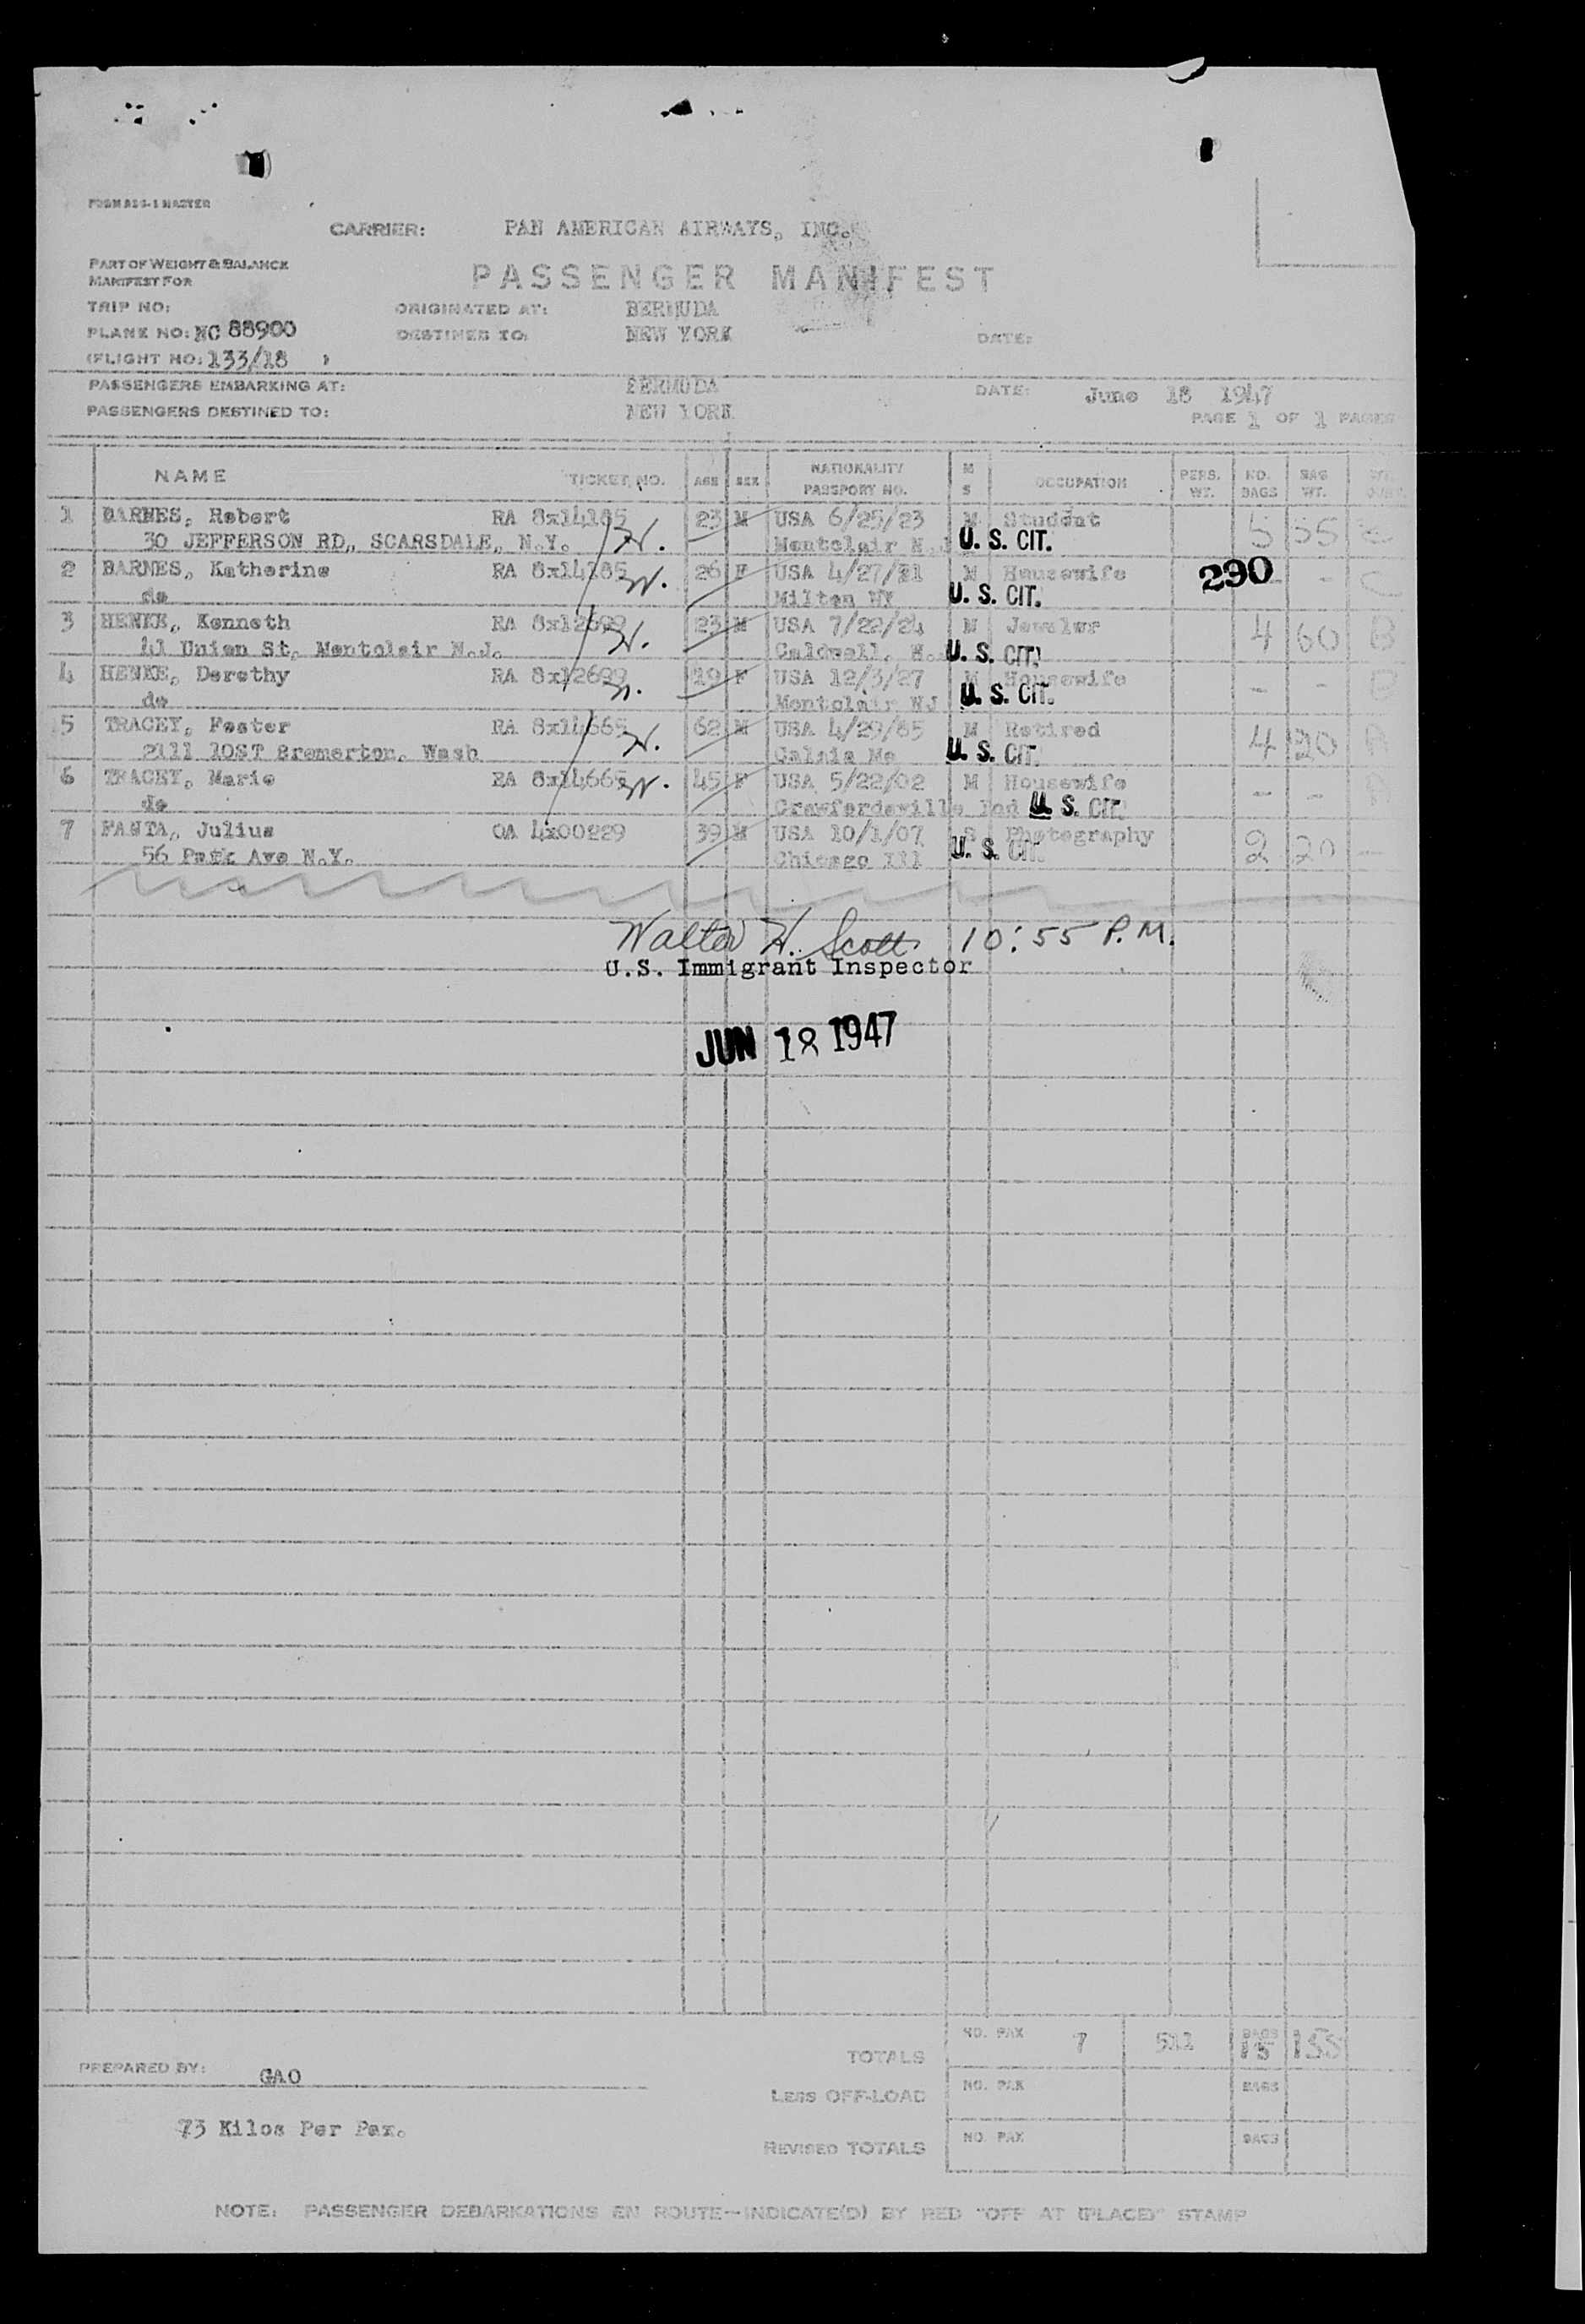 FORM ASG-1 MASTER
CARRIER: PAN AMERICAN AIRWAYS, INC.
PART OF WEIGHT & BALANCE
MANIFEST FOR
PASSENGER MANIFEST
TRIP NO: ORIGINATED AT: BERMUDA
PLANE NO: NC 88900 DESTINED TO: NEW YORK DATE:
(FLIGHT NO: 133/18 )
PASSENGERS EMBARKING AT: BERMUDA DATE: June 18 1947
PASSENGERS DESTINED TO: NEW YORK
PAGE 1 OF 1 PAGES
NAME TICKET NO. AGE SEX NATIONALITY PASSPORT NO. M S OCCUPATION PERS. WT. NO. BAGS BAG WT.
1 BARNES, Robert RA 8x14185 23 M USA 6/25/23 M Student 5 55
30 JEFFERSON RD., SCARSDALE, N.Y. Montclair N.J U. S. CIT.
2 BARNES, Katherine RA 8x14185 26 F USA 4/27/21 M Housewife 290 - C
do Milton U. S. CIT.
3 HENKE, Kenneth RA 8x12699 23 M USA 7/22/24 M Jeweler 4 60 B
41 Union St, Montclair N.J. Caldwell, N. U. S. CIT.
4 HENKE, Dorothy RA 8x12699 19 F USA 12/3/27 M Housewife - - B
do Montclair NJ U. S. CIT.
5 TRACEY, Foster RA 8x14665 62 M USA 4/29/85 M Retired 4 20
2111 10ST Bremerton, Wash Calais Me U. S. CIT.
6 TRACEY, Marie RA 8x14665 45 F USA 5/22/02 M Housewife - -
do Crawfordsville Ind U. S. CIT.
7 FANTA, Julius OA 4x00229 39 M USA 10/1/07 S Photography 2 20 -
56 Park Ave N.Y. Chicago Ill U. S. CIT.
Walter H. Scott 10:55 P.M.
U.S. Immigrant Inspector
JUN 18 1947
TOTALS NO. PAX 7 511 BAGS 15 155
PREPARED BY: GAO
LESS OFF-LOAD NO. PAX BAGS
73 Kilos Per Pax.
REVISED TOTALS NO. PAX BAGS
NOTE: PASSENGER DEBARKATIONS EN ROUTE—INDICATE(D) BY RED "OFF AT (PLACE)" STAMP